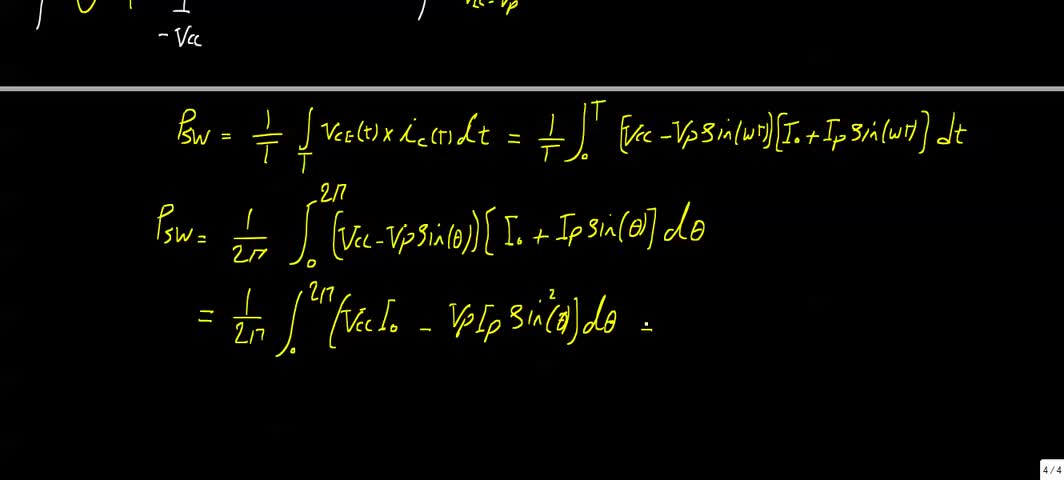 -Vcc
Vcc-Vp
P_SW = 1/T ∫_T V_CE(t) × i_c(T) dt = 1/T ∫_0^T [Vcc - Vp Sin(wt)] [I_0 + Ip Sin(wt)] dt
P_SW = 1/2π ∫_0^2π [Vcc - Vp Sin(θ)] [I_0 + Ip Sin(θ)] dθ
= 1/2π ∫_0^2π [Vcc I_0 - Vp Ip Sin²(θ)] dθ =
4 / 4